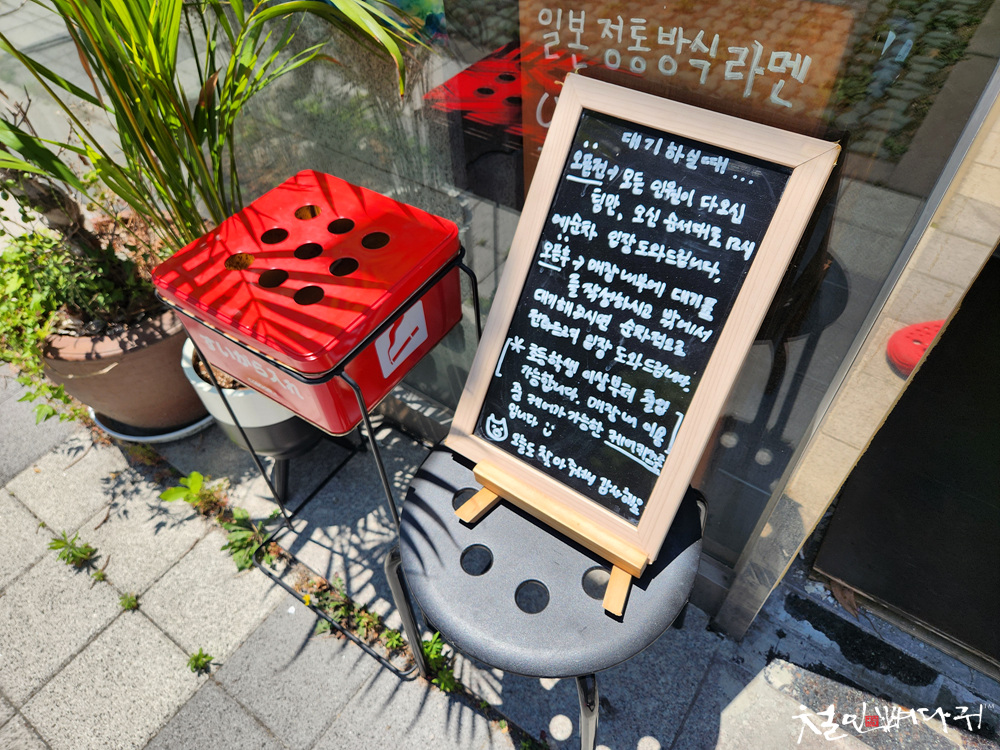 일본 정통방식 라멘
대기 하실 때 ...
오픈전 → 모든 인원이 다 오신
팀만, 오신 순서대로 12시
에 순차 입장 도와드립니다.
오픈후 → 매장 내부에 대기를
를 작성하시고 밖에서
대기해주시면 순차적으로
전화드려 입장 도와드립니다.
* 초등학생 이상부터 출입
가능합니다. 매장 내 이용
중 케어가 가능한 케이키즈존
입니다
오늘도 찾아주셔서 감사해요
すいがら入れ
철인뼈다귀